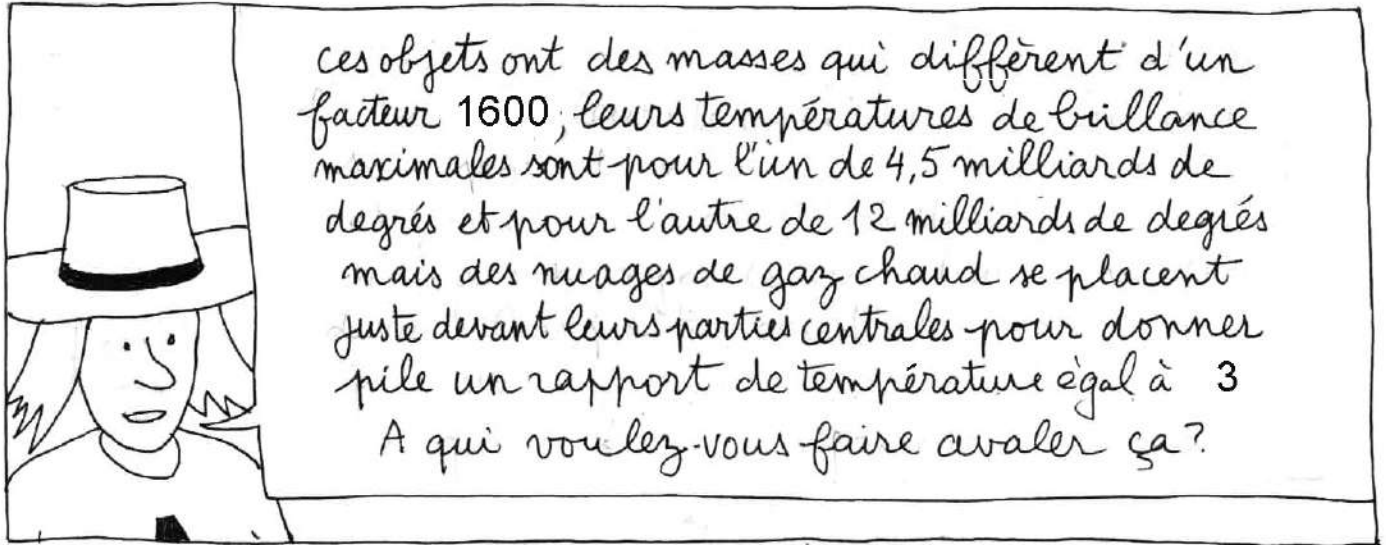 ces objets ont des masses qui diffèrent d'un
facteur 1600, leurs températures de brillance
maximales sont pour l'un de 4,5 milliards de
degrés et pour l'autre de 12 milliards de degrés
mais des nuages de gaz chaud se placent
juste devant leurs parties centrales pour donner
pile un rapport de température égal à 3
A qui voulez-vous faire avaler ça?